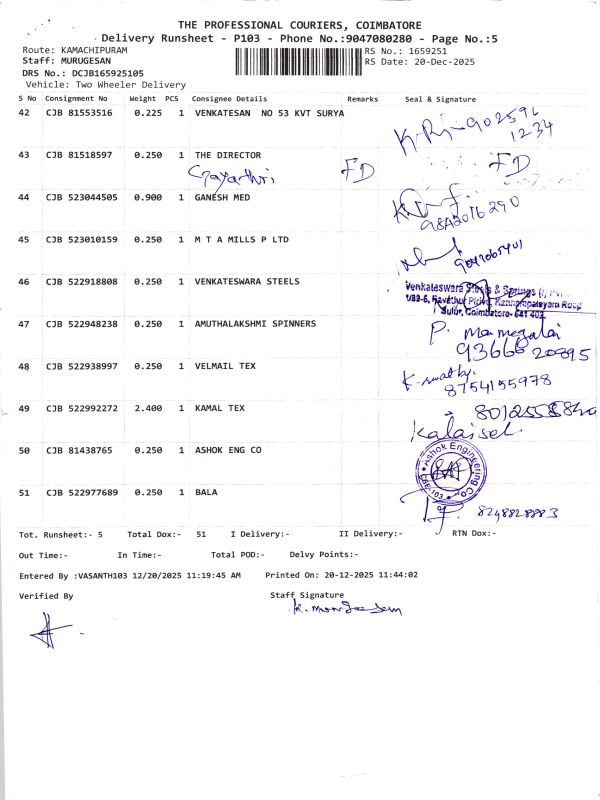 THE PROFESSIONAL COURIERS, COIMBATORE
Delivery Runsheet - P103 - Phone No.:9047080280 - Page No.:5
Route: KAMACHIPURAM RS No.: 1659251
Staff: MURUGESAN RS Date: 20-Dec-2025
DRS No.: DCJB165925105
Vehicle: Two Wheeler Delivery
S No Consignment No Weight PCS Consignee Details Remarks Seal & Signature
42 CJB 81553516 0.225 1 VENKATESAN NO 53 KVT SURYA
12-34
43 CJB 81518597 0.250 1 THE DIRECTOR
Gayathri FD FD
44 CJB 523044505 0.900 1 GANESH MED
45 CJB 523010159 0.250 1 M T A MILLS P LTD
46 CJB 522918808 0.250 1 VENKATESWARA STEELS
Venkateswara Steels & Springs (I)
Sulur, Coimbatore- 641 402
47 CJB 522948238 0.250 1 AMUTHALAKSHMI SPINNERS
P.
93666 20895
48 CJB 522938997 0.250 1 VELMAIL TEX
8754155978
49 CJB 522992272 2.400 1 KAMAL TEX
50 CJB 81438765 0.250 1 ASHOK ENG CO
Ashok Engineering Co
51 CJB 522977689 0.250 1 BALA
8248828883
Tot. Runsheet:- 5 Total Dox:- 51 I Delivery:- II Delivery:- RTN Dox:-
Out Time:- In Time:- Total POD:- Delvy Points:-
Entered By :VASANTH103 12/20/2025 11:19:45 AM Printed On: 20-12-2025 11:44:02
Verified By Staff Signature